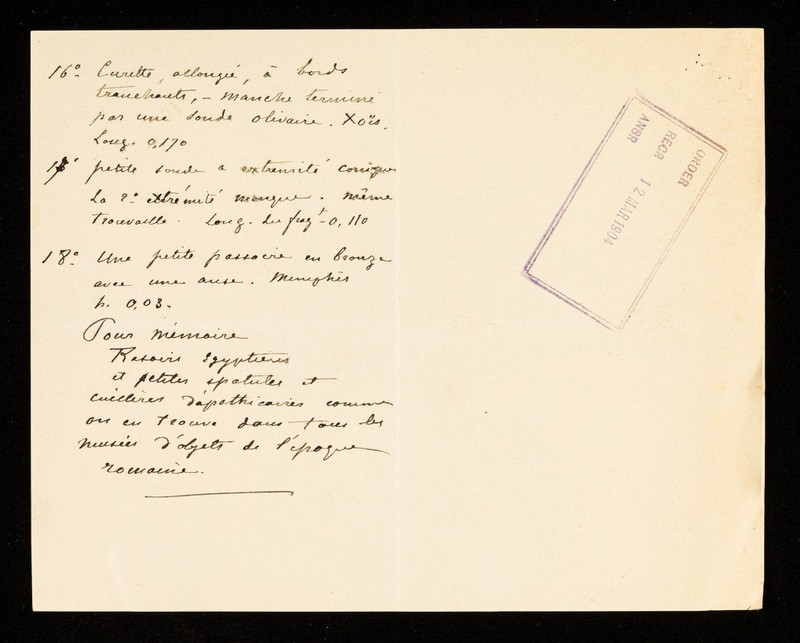 16° Curette, allongée, à bords
tranchants, - manche terminé
par une sonde olivaire. Xoïs.
Long. 0,170
17° petite sonde a extremité conique
La 2e extrémité manque. même
trouvaille. Long. du fragt - 0,110
18° Une petite passoire en bronze
avec une anse. Memphis
h. 0,03.
Pour mémoire
Rasoirs Egyptiens
et petites spatules et
cuillères d'apothicaires comme
on en trouve dans tous les
musées d'objets de l'époque
romaine.
ORDER
RECR 12 MAR 1904
ANSR